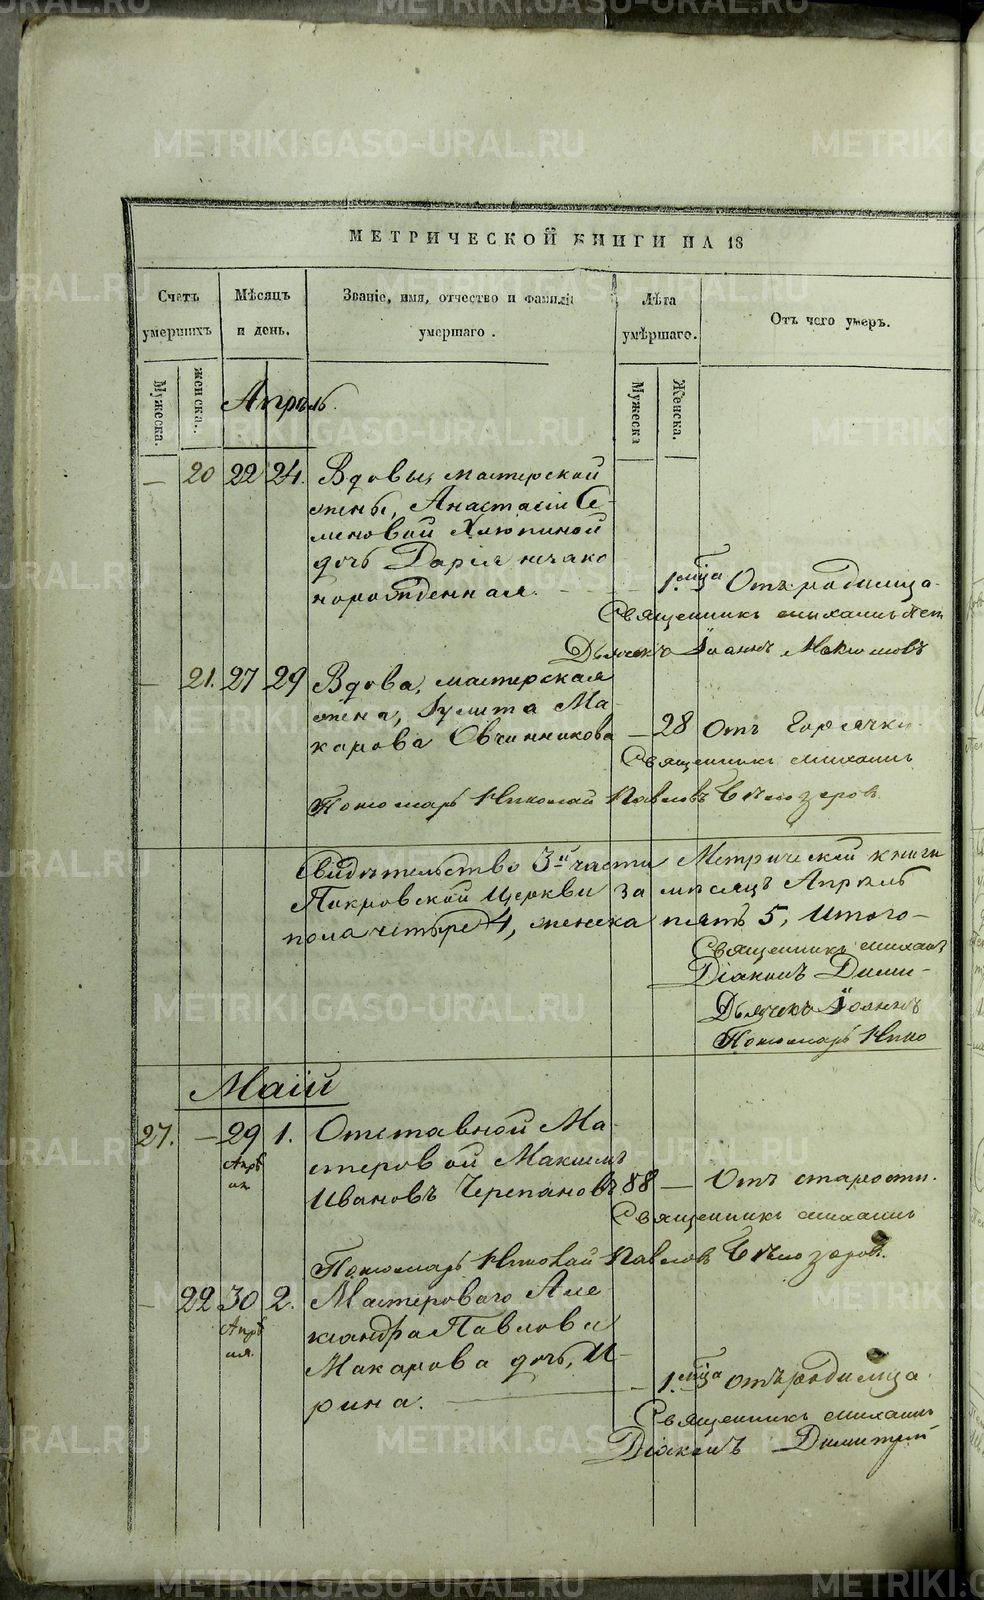 МЕТРИЧЕСКОЙ КНИГИ НА 18
Счетъ умершихъ
Мѣсяцъ и день.
Званіе, имя, отчество и фамилі
умершаго.
Лѣта умѣршаго.
Отъ чего умеръ.
Мужеска.
женска.
Мужеска
Женска.
Апрѣль.
— 20 22 24. Вдовы, мастерской
жены, Анастасіи Се-
меновой Хлюпиной
дочь Дарія
норожденная. — 1. мца Отъ родимца.
Священникъ Михаилъ Пет
Дьячекъ Іоаннъ
— 21. 27 29 Вдова, мастерская
жена, Іулита Ма-
карова Овчинникова — 28 Отъ Горячки.
Священникъ Михаилъ
Пономарь Николай Павловъ Бѣлозеров
Свидѣтельство 3й части Метрической книги
Покровской Церкви за мѣсяцъ Апрѣль
пола четыре 4, женска пять 5, Итого —
Священникъ Михаил
Діаконъ Дими-
Дьячекъ Іоаннъ
Пономарь Нико
Маій
27. — 29 1. Отставной Ма-
Апрѣ
ля
стеровой Максимъ
Ивановъ Черепановъ 88 — Отъ старости.
Священникъ Михаилъ
Пономарь Николай Павлов Бѣлозеров.
— 22 30 2. Мастероваго Але
Апрѣ
ля.
ксандра Павлова
Макарова дочь, И-
рина. — 1. мца отъ родимца.
Священникъ Михаилъ
Діаконъ Димитрій
METRIKI.GASO-URAL.RU